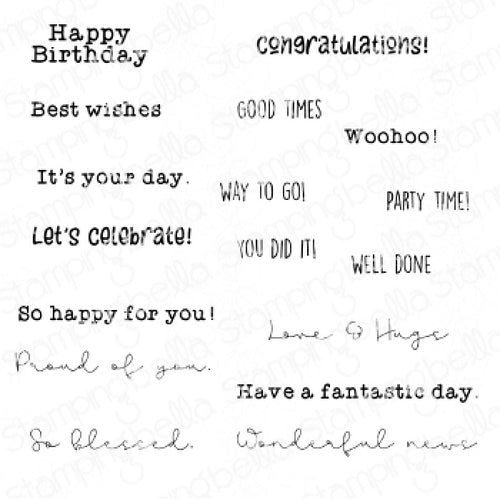 Happy
Birthday
Congratulations!
Best wishes
GOOD TIMES
Woohoo!
It's your day.
WAY TO GO!
PARTY TIME!
Let's Celebrate!
YOU DID IT!
WELL DONE
So happy for you!
Love & Hugs
Proud of you.
Have a fantastic day.
So blessed.
Wonderful news